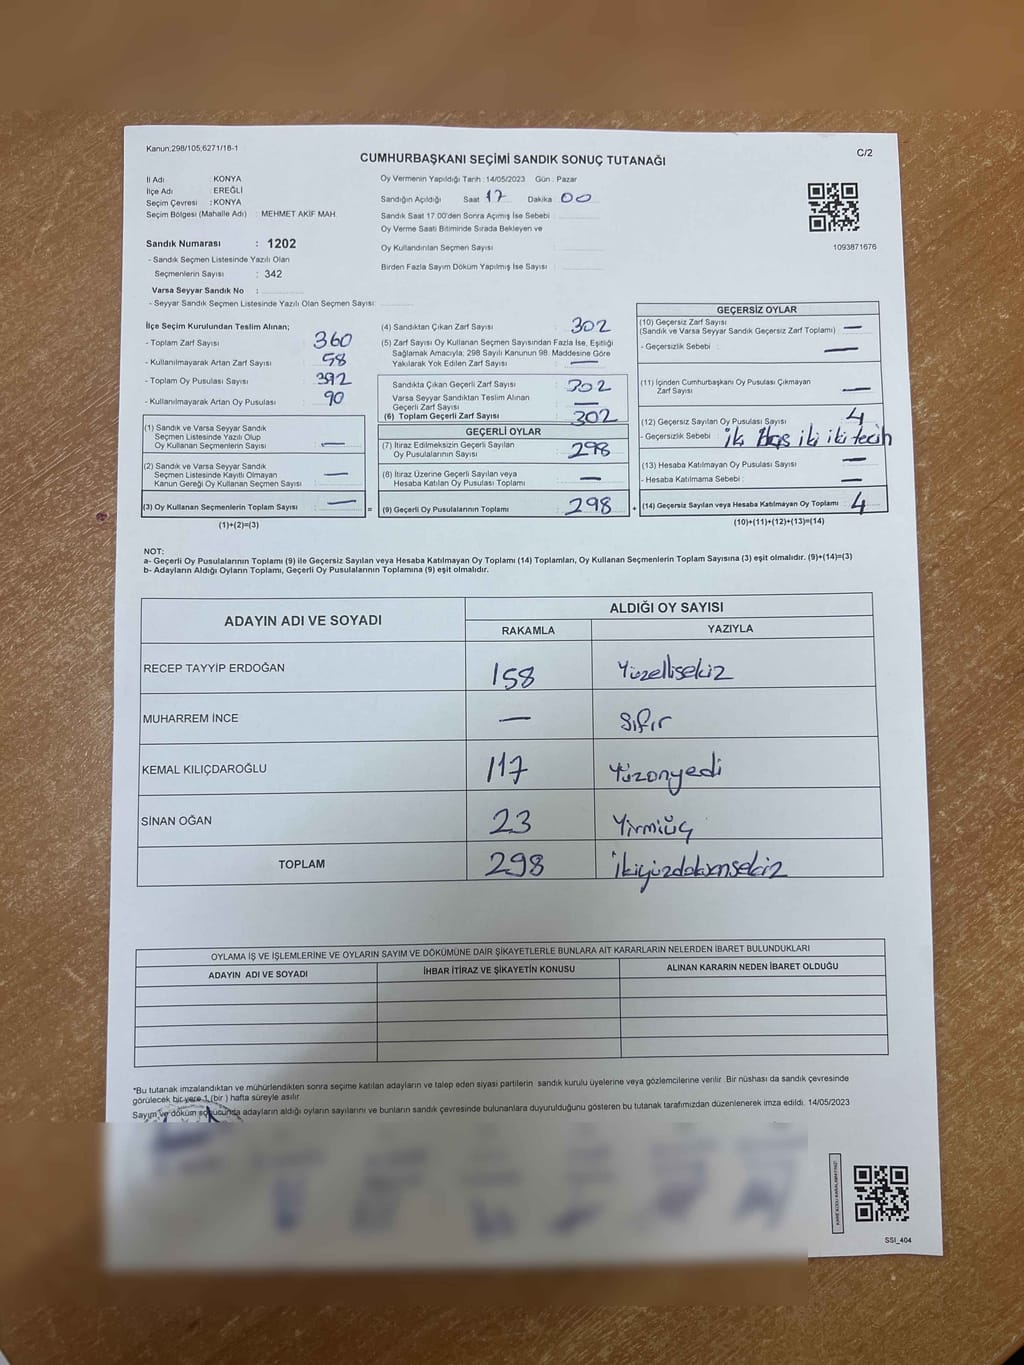 Kanun;298/105,6271/18-1
CUMHURBAŞKANI SEÇİMİ SANDIK SONUÇ TUTANAĞI
C/2
İl Adı : KONYA
İlçe Adı : EREĞLİ
Seçim Çevresi : KONYA
Seçim Bölgesi (Mahalle Adı) : MEHMET AKİF MAH.
Sandık Numarası : 1202
- Sandık Seçmen Listesinde Yazılı Olan
Seçmenlerin Sayısı : 342
Varsa Seyyar Sandık No :
- Seyyar Sandık Seçmen Listesinde Yazılı Olan Seçmen Sayısı:
Oy Vermenin Yapıldığı Tarih : 14/05/2023 Gün : Pazar
Sandığın Açıldığı Saat 17 Dakika 00
Sandık Saat 17.00'den Sonra Açımış İse Sebebi :
Oy Verme Saati Bitiminde Sırada Bekleyen ve
Oy Kullandırılan Seçmen Sayısı :
Birden Fazla Sayım Döküm Yapılmış İse Sayısı :
1093871676
İlçe Seçim Kurulundan Teslim Alınan;
- Toplam Zarf Sayısı : 360
- Kullanılmayarak Artan Zarf Sayısı : 58
- Toplam Oy Pusulası Sayısı : 392
- Kullanılmayarak Artan Oy Pusulası : 90
(1) Sandık ve Varsa Seyyar Sandık
Seçmen Listesinde Yazılı Olup
Oy Kullanan Seçmenlerin Sayısı : —
(2) Sandık ve Varsa Seyyar Sandık
Seçmen Listesinde Kayıtlı Olmayan
Kanun Gereği Oy Kullanan Seçmen Sayısı : —
(3) Oy Kullanan Seçmenlerin Toplam Sayısı : — =
(1)+(2)=(3)
(4) Sandıktan Çıkan Zarf Sayısı : 302
(5) Zarf Sayısı Oy Kullanan Seçmen Sayısından Fazla İse, Eşitliği
Sağlamak Amacıyla; 298 Sayılı Kanunun 98. Maddesine Göre
Yakılarak Yok Edilen Zarf Sayısı : —
Sandıkta Çıkan Geçerli Zarf Sayısı : 302
Varsa Seyyar Sandıktan Teslim Alınan
Geçerli Zarf Sayısı : —
(6) Toplam Geçerli Zarf Sayısı : 302
GEÇERLİ OYLAR
(7) İtiraz Edilmeksizin Geçerli Sayılan
Oy Pusulalarının Sayısı : 298
(8) İtiraz Üzerine Geçerli Sayılan veya
Hesaba Katılan Oy Pusulası Toplamı : —
(9) Geçerli Oy Pusulalarının Toplamı : 298 +
GEÇERSİZ OYLAR
(10) Geçersiz Zarf Sayısı
(Sandık ve Varsa Seyyar Sandık Geçersiz Zarf Toplamı) : —
- Geçersizlik Sebebi : —
(11) İçinden Cumhurbaşkanı Oy Pusulası Çıkmayan
Zarf Sayısı : —
(12) Geçersiz Sayılan Oy Pusulası Sayısı : 4
- Geçersizlik Sebebi : iki iki iki tercih
(13) Hesaba Katılmayan Oy Pusulası Sayısı : —
- Hesaba Katılmama Sebebi : —
(14) Geçersiz Sayılan veya Hesaba Katılmayan Oy Toplamı : 4
(10)+(11)+(12)+(13)=(14)
NOT:
a- Geçerli Oy Pusulalarının Toplamı (9) ile Geçersiz Sayılan veya Hesaba Katılmayan Oy Toplamı (14) Toplamları, Oy Kullanan Seçmenlerin Toplam Sayısına (3) eşit olmalıdır. (9)+(14)=(3)
b- Adayların Aldığı Oyların Toplamı, Geçerli Oy Pusulalarının Toplamına (9) eşit olmalıdır.
ADAYIN ADI VE SOYADI
ALDIĞI OY SAYISI
RAKAMLA YAZIYLA
RECEP TAYYİP ERDOĞAN 158 Yüzellisekiz
MUHARREM İNCE — Sıfır
KEMAL KILIÇDAROĞLU 117 Yüzonyedi
SİNAN OĞAN 23 Yirmiüç
TOPLAM 298 İkiyüzdoksansekiz
OYLAMA İŞ VE İŞLEMLERİNE VE OYLARIN SAYIM VE DÖKÜMÜNE DAİR ŞİKAYETLERLE BUNLARA AİT KARARLARIN NELERDEN İBARET BULUNDUKLARI
ADAYIN ADI VE SOYADI İHBAR İTİRAZ VE ŞİKAYETİN KONUSU ALINAN KARARIN NEDEN İBARET OLDUĞU
*Bu tutanak imzalandıktan ve mühürlendikten sonra seçime katılan adayların ve talep eden siyasi partilerin sandık kurulu üyelerine veya gözlemcilerine verilir .Bir nüshası da sandık çevresinde
görülecek bir yere 1 (bir ) hafta süreyle asılır.
Sayım ve döküm sonucunda adayların aldığı oyların sayılarını ve bunların sandık çevresinde bulunanlara duyurulduğunu gösteren bu tutanak tarafımızdan düzenlenerek imza edildi. 14/05/2023
KARE KODU KARALAMAYINIZ!
SSI_404